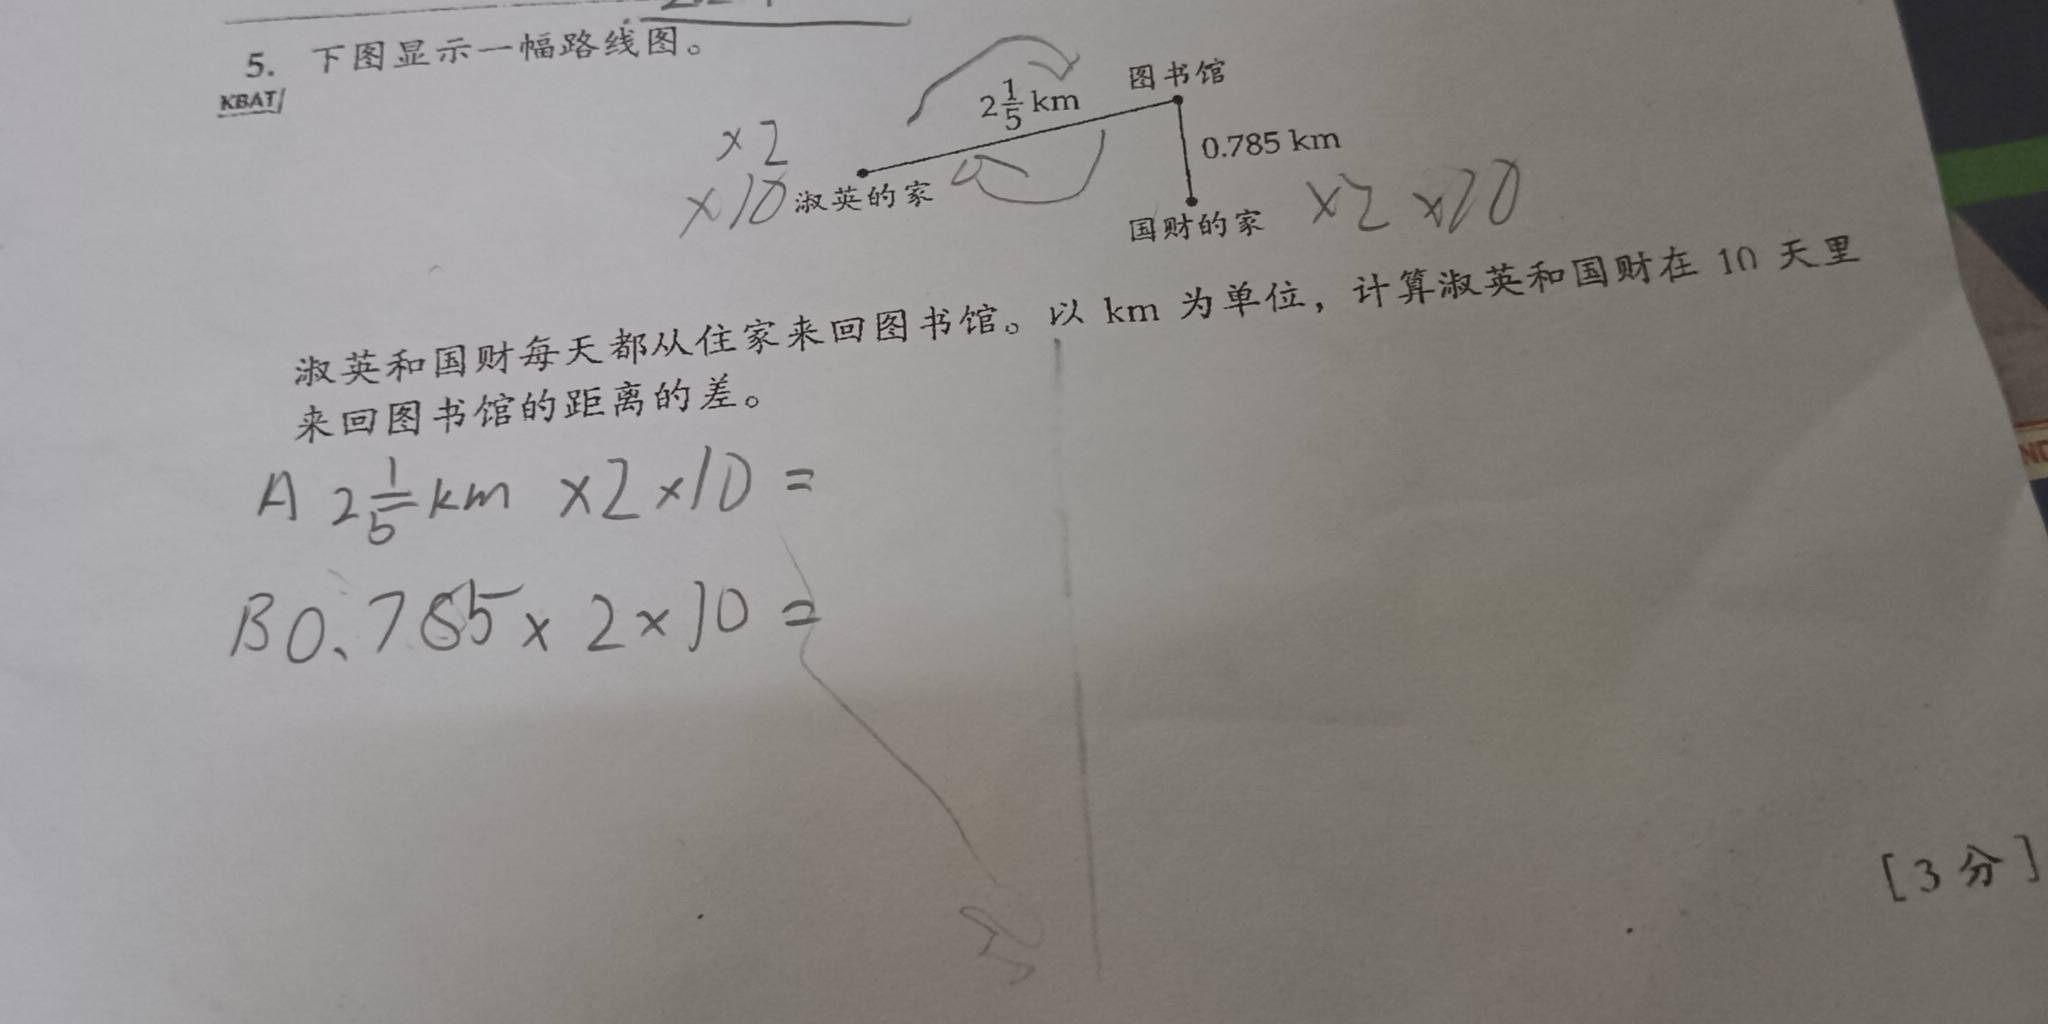 5. 下图显示一幅路线图。
KBAT
图书馆
2 1/5 km
×2
0.785 km
×10
淑英的家
国财的家
×2 ×10
淑英和国财每天都从住家来回图书馆。以 km 为单位，计算淑英和国财在 10 天里
来回图书馆的距离的差。
A 2 1/5 km ×2×10=
B 0.785×2×10=
[3 分]